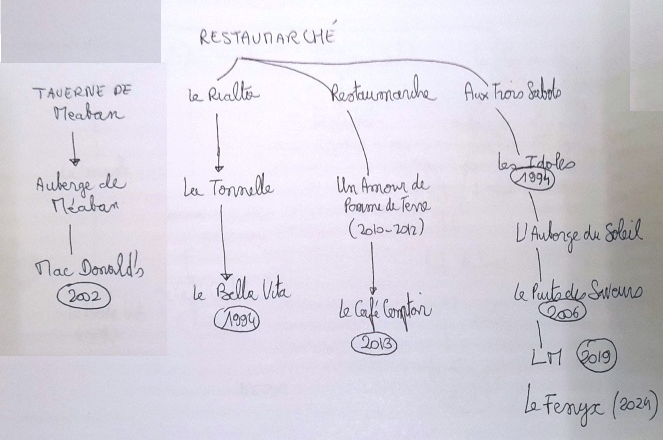 RESTAUMARCHÉ
TAVERNE DE
Méaban
Auberge de
Méaban
Mac Donald's
2002
Le Rialto
La Tonnelle
Le Bella Vita
1994
Restaumarché
Un Amour de
Pomme de Terre
(2010-2012)
Le Café Comptoir
2013
Aux Trois Sabots
Les Idoles
1994
L'Auberge du Soleil
Le Puits des Saveurs
2006
LM 2019
Le Fenyx (2024)